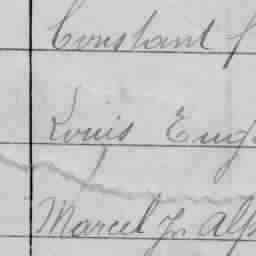 Constant
Louis Eug
Marcel Jn Alp